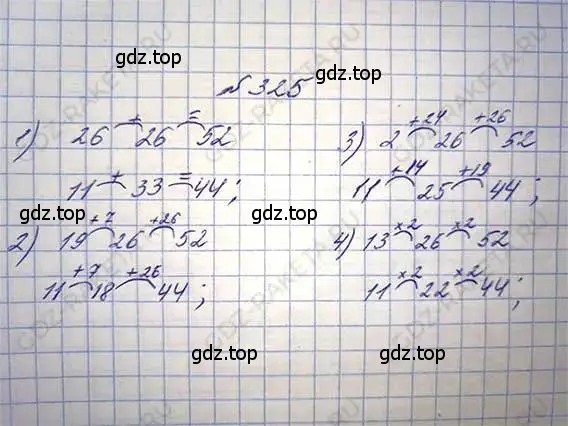 № 325
1) 26 + 26 = 52
11 + 33 = 44;
2) 19 +7 26 +26 52
11 +7 18 +26 44;
3) 2 +24 26 +26 52
11 +14 25 +19 44;
4) 13 ×2 26 ×2 52
11 ×2 22 ×2 44;
gdz.top
gdz.top
gdz.top
gdz.top
gdz.top
gdz.top
gdz.top
GDZ-RAKETA.RU